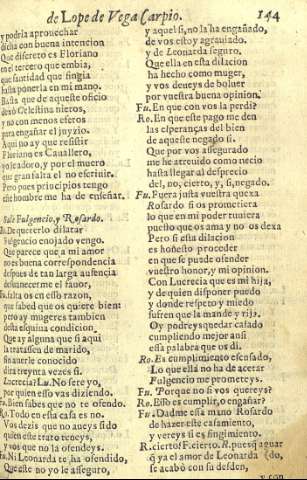 de Lope de Vega Carpio. 144
y podria aprouechar
dicha con buena intencion
Que discreto es Floriano
en el tercero que embia,
que santidad que fingia
hasta ponerla en mi mano.
Basta que de aqueste oficio
dexò Celestina nietos,
y no con menos efetos
para engañar el juyzio.
Aqui no ay que resistir
Floriano es Cauallero,
y soldado, y por el muero
que gran falta el no escriuir.
Pero pues principios tengo
este hombre me ha de enseñar.
Sale Fulgencio, y Rosardo.
Ro. De quererlo dilatar
Fulgencio enojado vengo.
Que parece que a mi amor
no es buena correspondencia
despues de tan larga ausencia
desuanecerme el fauor,
Fu. falta os en esso razon,
que sabed que os quiere bien
pero ay mugeres tambien
desta esquiua condicion.
Que ay alguna que si aqui
la tratassen de marido,
sin auerle conocido
dira treynta vezes si.
Lucrecia? Lu. No fere yo,
por quien esso vas diziendo.
Fu. Bien sabes que no te ofendo.
Ro. Todo en esta casa es no.
Vos dezis que no aueys sido
quien este trato teneys,
y vos que no la ofendeys.
Fu. Ni Leonarda te ha ofendido,
Que este no yo le asseguro,
y aquel si, no la ha engañado,
de vos estoy agrauiado.
y de Leonarda seguro.
Que ella en esta dilacion
ha hecho como muger,
y vos deueys de boluer
por vuestra buena opinion.
Fu. En que con vos la perdi?
Ro. En que este pago me den
las esperanças del bien
de aqueste negado si.
Que por vos assegurado
me he atreuido como necio
hasta llegar al desprecio
del, no, cierto, y, si, negado.
Fu. Fuera justa vuestra quexa
Rosardo si os prometiera
lo que en mi poder tuuiera
puesto que os ama y no os dexa
Pero si esta dilacion
es honesto proceder
en que se puede ofender
vuestro honor, y mi opinion.
Con Lucrecia que es mi hija,
y de quien disponer puedo
y donde respeto y miedo
sufren que la mande y rija.
Oy podreys quedar casado
cumpliendo mejor ansi
essa palabra que di.
Ro. Es cumplimiento escusado,
Lo que ella no ha de acetar
Fulgencio me prometeys.
Fu. Porque no si vos quereys?
Ro. Esso es cumplir, o engañar?
Fu. Dadme essa mano Rosardo
de hazer este casamiento,
y vereys si es fingimiento.
R. cierto? F. cierto. R. pues q̃ aguar
q̃ ya el amor de Leonarda (do,
se acabò con su desden,